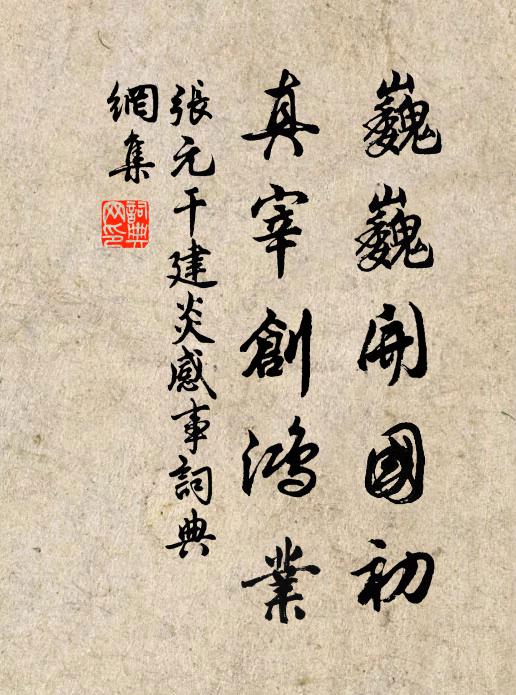 巍巍開國初
真宰創鴻業
張元干建炎感事詞典
網集
詞典
网印